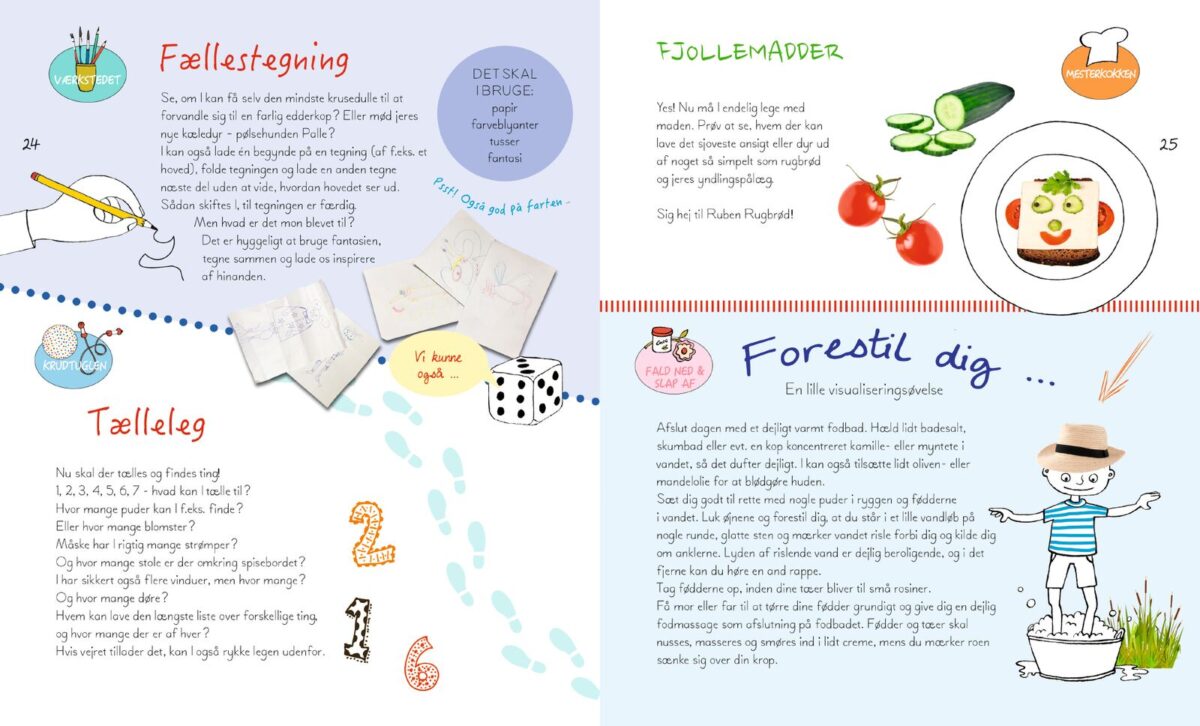 VÆRKSTEDET
Fællestegning
Se, om I kan få selv den mindste krusedulle til at
forvandle sig til en farlig edderkop? Eller mød jeres
nye kæledyr - pølsehunden Palle?
I kan også lade én begynde på en tegning (af f.eks. et
hoved), folde tegningen og lade en anden tegne
næste del uden at vide, hvordan hovedet ser ud.
Sådan skiftes I, til tegningen er færdig.
Men hvad er det mon blevet til?
Det er hyggeligt at bruge fantasien,
tegne sammen og lade os inspirere
af hinanden.
DET SKAL
I BRUGE:
papir
farveblyanter
tusser
fantasi
Psst! Også god på farten -
24
KRUDTUGLEN
Vi kunne
også ...
Tælleleg
Nu skal der tælles og findes ting!
1, 2, 3, 4, 5, 6, 7 - hvad kan I tælle til?
Hvor mange puder kan I f.eks. finde?
Eller hvor mange blomster?
Måske har I rigtig mange strømper?
Og hvor mange stole er der omkring spisebordet?
I har sikkert også flere vinduer, men hvor mange?
Og hvor mange døre?
Hvem kan lave den længste liste over forskellige ting,
og hvor mange der er af hver?
Hvis vejret tillader det, kan I også rykke legen udenfor.
2
1
6
FJOLLEMADDER
MESTERKOKKEN
Yes! Nu må I endelig lege med
maden. Prøv at se, hvem der kan
lave det sjoveste ansigt eller dyr ud
af noget så simpelt som rugbrød
og jeres yndlingspålæg.
Sig hej til Ruben Rugbrød!
25
FALD NED &
SLAP AF
Forestil dig ...
En lille visualiseringsøvelse
Afslut dagen med et dejligt varmt fodbad. Hæld lidt badesalt,
skumbad eller evt. en kop koncentreret kamille- eller myntete i
vandet, så det dufter dejligt. I kan også tilsætte lidt oliven- eller
mandelolie for at blødgøre huden.
Sæt dig godt til rette med nogle puder i ryggen og fødderne
i vandet. Luk øjnene og forestil dig, at du står i et lille vandløb på
nogle runde, glatte sten og mærker vandet risle forbi dig og kilde dig
om anklerne. Lyden af rislende vand er dejlig beroligende, og i det
fjerne kan du høre en and rappe.
Tag fødderne op, inden dine tæer bliver til små rosiner.
Få mor eller far til at tørre dine fødder grundigt og give dig en dejlig
fodmassage som afslutning på fodbadet. Fødder og tæer skal
nusses, masseres og smøres ind i lidt creme, mens du mærker roen
sænke sig over din krop.